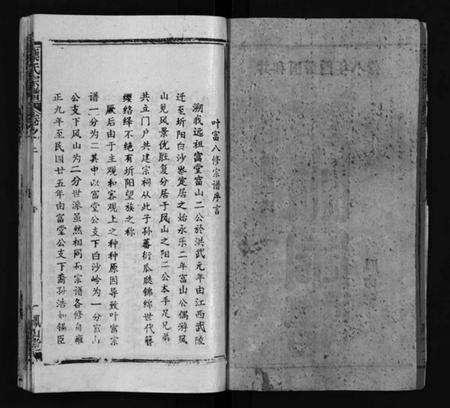 叶富八修宗谱序言
溯我远祖富堂富山二公於洪武元年由江西武陵
迁至圻阳白沙岭定居之始永乐二年富山公偶游凤
山见风景优胜复分居于凤山之阳二公本手足兄弟
共立门户共建宗祠从此子孙蕃衍瓜瓞绵绵世代簪
缨络绎不绝有圻阳望族之称
厥后由于主观和客观上之种种原因导致叶富宗
谱一分为二其中以富堂公支下白沙岭为一分富山
公支下凤山为二分世派虽然相同而宗谱各修自雍
正九年至民国廿五年由富堂公支下裔孙浩如锡臣